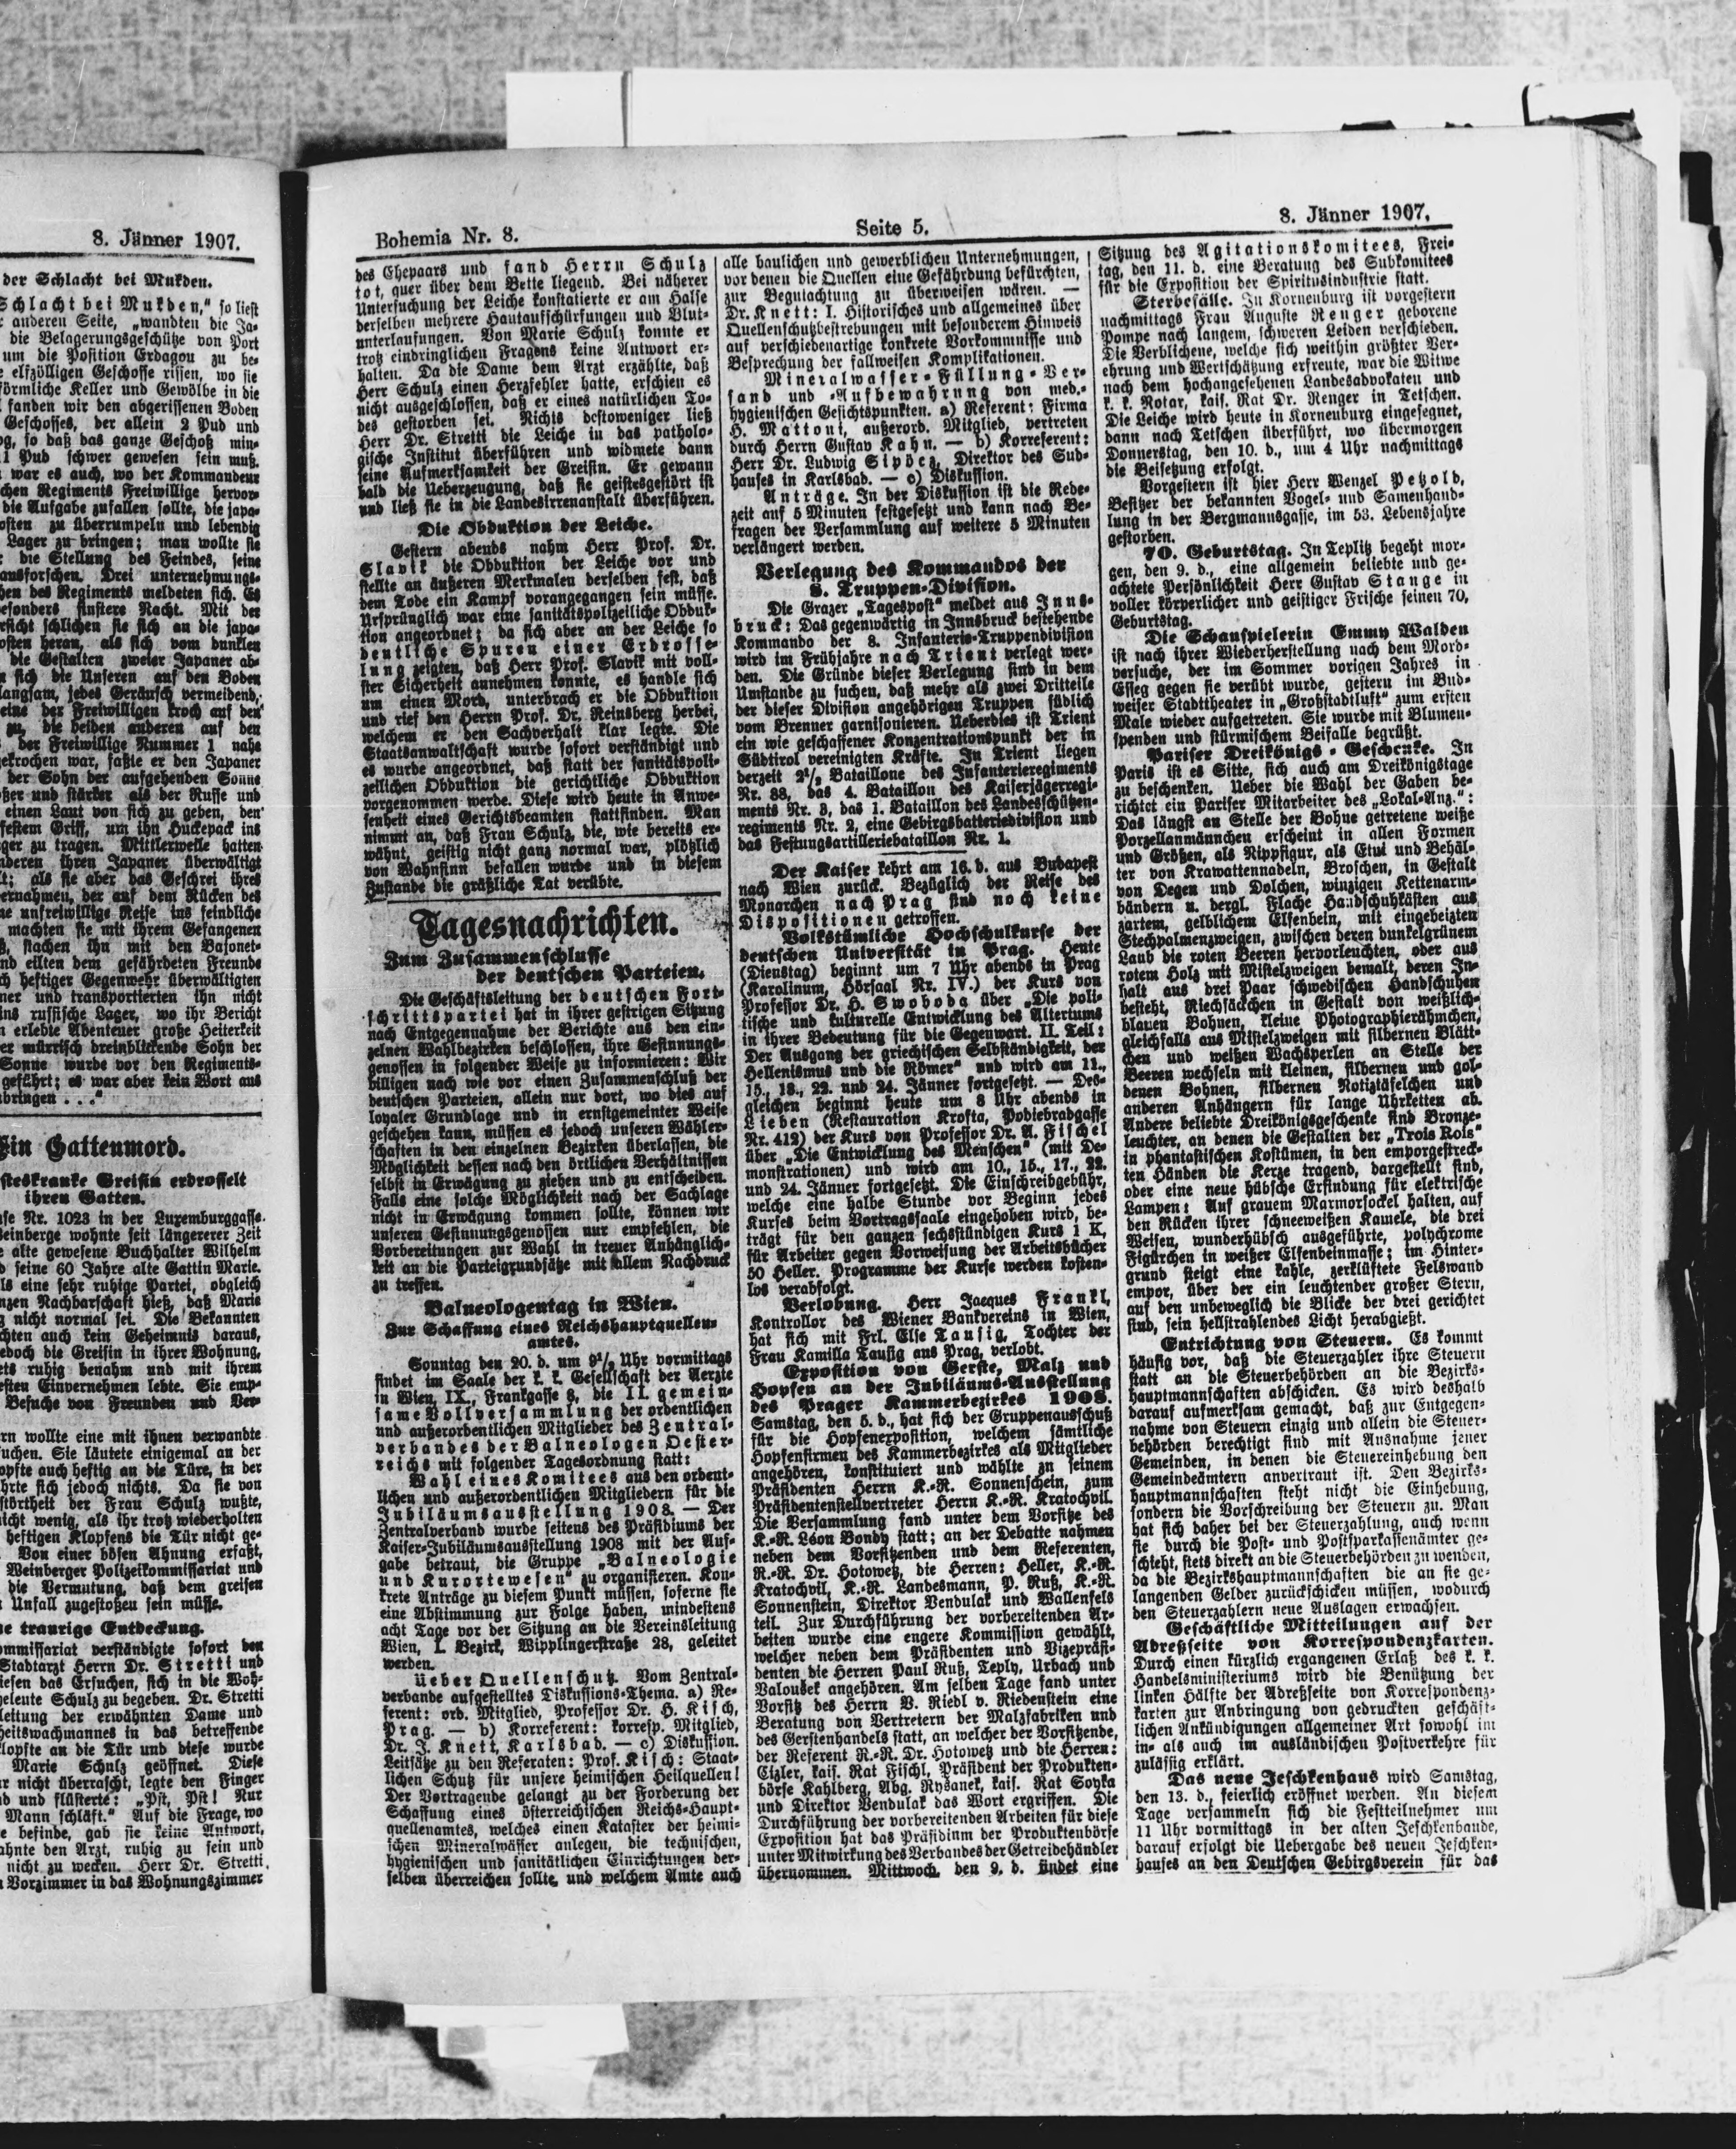 8. Jänner 1907.
der Schlacht bei Mukden.
Schlacht bei Mukden," so liest
anderen Seite, „wandten die Ja-
die Belagerungsgeschütze von Port
um die Position Erdagou zu be-
elfzölligen Geschosse rissen, wo sie
förmliche Keller und Gewölbe in die
fanden wir den abgerissenen Boden
Geschosses, der allein 2 Pud und
so daß das ganze Geschoß min-
1 Pud schwer gewesen sein muß.
war es auch, wo der Kommandeur
chen Regiments Freiwillige hervor-
die Aufgabe zufallen sollte, die japa-
osten zu überrumpeln und lebendig
Lager zu bringen; man wollte sie
die Stellung des Feindes, seine
ausforschen. Drei unternehmungs-
hen des Regiments meldeten sich. Es
besonders finstere Nacht. Mit der
rsicht schlichen sie sich an die japa-
osten heran, als sich vom dunklen
die Gestalten zweier Japaner ab-
sich die Unseren auf den Boden
langsam, jedes Geräusch vermeidend,
eine der Freiwilligen kroch auf den
zu, die beiden anderen auf den
der Freiwillige Nummer 1 nahe
gekrochen war, faßte er den Japaner
der Sohn der aufgehenden Sonne
ßer und stärker als der Russe und
einen Laut von sich zu geben, den
festem Griff, um ihn Huckepack ins
ger zu tragen. Mittlerweile hatten
nderen ihren Japaner überwältigt
t; als sie aber das Geschrei ihres
ernahmen, der auf dem Rücken des
ne unfreiwillige Reise ins feindliche
machten sie mit ihrem Gefangenen
ß, stachen ihn mit den Bajonet-
nd eilten dem gefährdeten Freunde
ch heftiger Gegenwehr überwältigten
ner und transportierten ihn nicht
ins russische Lager, wo ihr Bericht
erlebte Abenteuer große Heiterkeit
er mürrisch dreinblickende Sohn der
Sonne wurde vor den Regiments-
geführt; es war aber kein Wort aus
bringen . . ."
Ein Gattenmord.
steskranke Greisin erdrosselt
ihren Gatten.
use Nr. 1023 in der Luxemburggasse.
Weinberge wohnte seit längererer Zeit
alte gewesene Buchhalter Wilhelm
d seine 60 Jahre alte Gattin Marie.
ls eine sehr ruhige Partei, obgleich
nzen Nachbarschaft hieß, daß Marie
nicht normal sei. Die Bekannten
chten auch kein Geheimnis daraus,
edoch die Greisin in ihrer Wohnung,
ets ruhig benahm und mit ihrem
esten Einvernehmen lebte. Sie emp-
Besuche von Freunden und Ver-
rn wollte eine mit ihnen verwandte
uchen. Sie läutete einigemal an der
opfte auch heftig an die Türe, in der
hrte sich jedoch nichts. Da sie von
störtheit der Frau Schulz wußte,
icht wenig, als ihr trotz wiederholten
heftigen Klopfens die Tür nicht ge-
Von einer bösen Ahnung erfaßt,
Weinberger Polizeikommissariat und
die Vermutung, daß dem greisen
Unfall zugestoßen sein müsse.
ne traurige Entdeckung.
ommissariat verständigte sofort den
Stadtarzt Herrn Dr. Stretti und
iesen das Ersuchen, sich in die Woh-
heleute Schulz zu begeben. Dr. Stretti
leitung der erwähnten Dame und
heitswachmannes in das betreffende
lopfte an die Tür und diese wurde
Marie Schulz geöffnet. Diese
r nicht überrascht, legte den Finger
d und flüsterte: „Pst, Pst! Nur
Mann schläft." Auf die Frage, wo
e befinde, gab sie keine Antwort,
ahnte den Arzt, ruhig zu sein und
nicht zu wecken. Herr Dr. Stretti,
Vorzimmer in das Wohnungszimmer
Bohemia Nr. 8.
Seite 5.
8. Jänner 1907.
des Ehepaars und fand Herrn Schulz
tot, quer über dem Bette liegend. Bei näherer
Untersuchung der Leiche konstatierte er am Halse
derselben mehrere Hautaufschürfungen und Blut-
unterlaufungen. Von Marie Schulz konnte er
trotz eindringlichen Fragens keine Antwort er-
halten. Da die Dame dem Arzt erzählte, daß
Herr Schulz einen Herzfehler hatte, erschien es
nicht ausgeschlossen, daß er eines natürlichen To-
des gestorben sei. Nichts destoweniger ließ
Herr Dr. Stretti die Leiche in das patholo-
gische Institut überführen und widmete dann
seine Aufmerksamkeit der Greisin. Er gewann
bald die Ueberzeugung, daß sie geistesgestört ist
und ließ sie in die Landesirrenanstalt überführen.
Die Obduktion der Leiche.
Gestern abends nahm Herr Prof. Dr.
Slavik die Obduktion der Leiche vor und
stellte an äußeren Merkmalen derselben fest, daß
dem Tode ein Kampf vorangegangen sein müsse.
Ursprünglich war eine sanitätspolizeiliche Obduk-
tion angeordnet; da sich aber an der Leiche so
deutliche Spuren einer Erdrosse-
lung zeigten, daß Herr Prof. Slavik mit voll-
ster Sicherheit annehmen konnte, es handle sich
um einen Mord, unterbrach er die Obduktion
und rief den Herrn Prof. Dr. Reinsberg herbei,
welchem er den Sachverhalt klar legte. Die
Staatsanwaltschaft wurde sofort verständigt und
es wurde angeordnet, daß statt der sanitätspoli-
zeilichen Obduktion die gerichtliche Obduktion
vorgenommen werde. Diese wird heute in Anwe-
senheit eines Gerichtsbeamten stattfinden. Man
nimmt an, daß Frau Schulz, die, wie bereits er-
wähnt, geistig nicht ganz normal war, plötzlich
von Wahnsinn befallen wurde und in diesem
Zustande die gräßliche Tat verübte.
Tagesnachrichten.
Zum Zusammenschlusse
der deutschen Parteien.
Die Geschäftsleitung der deutschen Fort-
schrittspartei hat in ihrer gestrigen Sitzung
nach Entgegennahme der Berichte aus den ein-
zelnen Wahlbezirken beschlossen, ihre Gesinnungs-
genossen in folgender Weise zu informieren: Wir
billigen nach wie vor einen Zusammenschluß der
deutschen Parteien, allein nur dort, wo dies auf
loyaler Grundlage und in ernstgemeinter Weise
geschehen kann, müssen es jedoch unseren Wähler-
schaften in den einzelnen Bezirken überlassen, die
Möglichkeit dessen nach den örtlichen Verhältnissen
selbst in Erwägung zu ziehen und zu entscheiden.
Falls eine solche Möglichkeit nach der Sachlage
nicht in Erwägung kommen sollte, können wir
unseren Gesinnungsgenossen nur empfehlen, die
Vorbereitungen zur Wahl in treuer Anhänglich-
keit an die Parteigrundsätze mit allem Nachdruck
zu treffen.
Balneologentag in Wien.
Zur Schaffung eines Reichshauptquellen-
amtes.
Sonntag den 20. d. um 9½ Uhr vormittags
findet im Saale der k. k. Gesellschaft der Aerzte
in Wien, IX., Frankgasse 8, die II. gemein-
same Vollversammlung der ordentlichen
und außerordentlichen Mitglieder des Zentral-
verbandes der Balneologen Oester-
reichs mit folgender Tagesordnung statt:
Wahl eines Komitees aus den ordent-
lichen und außerordentlichen Mitgliedern für die
Jubiläumsausstellung 1908. — Der
Zentralverband wurde seitens des Präsidiums der
Kaiser-Jubiläumsausstellung 1908 mit der Auf-
gabe betraut, die Gruppe „Balneologie
und Kurortewesen" zu organisieren. Kon-
krete Anträge zu diesem Punkt müssen, soferne sie
eine Abstimmung zur Folge haben, mindestens
acht Tage vor der Sitzung an die Vereinsleitung
Wien, I. Bezirk, Wipplingerstraße 28, geleitet
werden.
Ueber Quellenschutz. Vom Zentral-
verbande aufgestelltes Diskussions-Thema. a) Re-
ferent: ord. Mitglied, Professor Dr. H. Kisch,
Prag. — b) Korreferent: korresp. Mitglied,
Dr. J. Knett, Karlsbad. — c) Diskussion.
Leitsätze zu den Referaten: Prof. Kisch: Staat-
lichen Schutz für unsere heimischen Heilquellen!
Der Vortragende gelangt zu der Forderung der
Schaffung eines österreichischen Reichs-Haupt-
quellenamtes, welches einen Kataster der heimi-
schen Mineralwässer anlegen, die technischen,
hygienischen und sanitätlichen Einrichtungen der-
selben überreichen sollte, und welchem Amte auch
alle baulichen und gewerblichen Unternehmungen,
vor denen die Quellen eine Gefährdung befürchten,
zur Begutachtung zu überweisen wären. —
Dr. Knett: I. Historisches und allgemeines über
Quellenschutzbestrebungen mit besonderem Hinweis
auf verschiedenartige konkrete Vorkommnisse und
Besprechung der fallweisen Komplikationen.
Mineralwasser-Füllung-Ver-
sand und -Aufbewahrung von med.-
hygienischen Gesichtspunkten. a) Referent: Firma
H. Mattoni, außerord. Mitglied, vertreten
durch Herrn Gustav Kahn. — b) Korreferent:
Herr Dr. Ludwig Sipöcz, Direktor des Sud-
hauses in Karlsbad. — c) Diskussion.
Anträge. In der Diskussion ist die Rede-
zeit auf 5 Minuten festgesetzt und kann nach Be-
fragen der Versammlung auf weitere 5 Minuten
verlängert werden.
Verlegung des Kommandos der
8. Truppen-Division.
Die Grazer „Tagespost" meldet aus Inns-
bruck: Das gegenwärtig in Innsbruck bestehende
Kommando der 8. Infanterie-Truppendivision
wird im Frühjahre nach Trient verlegt wer-
den. Die Gründe dieser Verlegung sind in dem
Umstande zu suchen, daß mehr als zwei Dritteile
der dieser Division angehörigen Truppen südlich
vom Brenner garnisonieren. Ueberdies ist Trient
ein wie geschaffener Konzentrationspunkt der in
Südtirol vereinigten Kräfte. In Trient liegen
derzeit 2½ Bataillone des Infanterieregiments
Nr. 88, das 4. Bataillon des Kaiserjägerregi-
ments Nr. 3, das 1. Bataillon des Landesschützen-
regiments Nr. 2, eine Gebirgsbatteriedivision und
das Festungsartilleriebataillon Nr. 1.
Der Kaiser kehrt am 16. d. aus Budapest
nach Wien zurück. Bezüglich der Reise des
Monarchen nach Prag sind noch keine
Dispositionen getroffen.
Volkstümliche Hochschulkurse der
deutschen Universität in Prag. Heute
(Dienstag) beginnt um 7 Uhr abends in Prag
(Karolinum, Hörsaal Nr. IV.) der Kurs von
Professor Dr. H. Swoboda über „Die poli-
tische und kulturelle Entwicklung des Altertums
in ihrer Bedeutung für die Gegenwart. II. Teil:
Der Ausgang der griechischen Selbständigkeit, der
Hellenismus und die Römer" und wird am 11.,
15., 18., 22. und 24. Jänner fortgesetzt. — Des-
gleichen beginnt heute um 8 Uhr abends in
Lieben (Restauration Krofta, Podiebradgasse
Nr. 412) der Kurs von Professor Dr. A. Fischel
über „Die Entwicklung des Menschen" (mit De-
monstrationen) und wird am 10., 15., 17., 22.
und 24. Jänner fortgesetzt. Die Einschreibgebühr,
welche eine halbe Stunde vor Beginn jedes
Kurses beim Vortragssaale eingehoben wird, be-
trägt für den ganzen sechsstündigen Kurs 1 K,
für Arbeiter gegen Vorweisung der Arbeitsbücher
50 Heller. Programme der Kurse werden kosten-
los verabfolgt.
Verlobung. Herr Jacques Frankl,
Kontrollor des Wiener Bankvereins in Wien,
hat sich mit Frl. Else Taussig, Tochter der
Frau Kamilla Taussig aus Prag, verlobt.
Exposition von Gerste, Malz und
Hopfen an der Jubiläums-Ausstellung
des Prager Kammerbezirkes 1908.
Samstag, den 5. d., hat sich der Gruppenausschuß
für die Hopfenexposition, welchem sämtliche
Hopfenfirmen des Kammerbezirkes als Mitglieder
angehören, konstituiert und wählte zu seinem
Präsidenten Herrn K.-R. Sonnenschein, zum
Präsidentenstellvertreter Herrn K.-R. Kratochvil.
Die Versammlung fand unter dem Vorsitze des
K.-R. Léon Bondy statt; an der Debatte nahmen
neben dem Vorsitzenden und dem Referenten,
R.-R. Dr. Hotowetz, die Herren: Heller, K.-R.
Kratochvil, K.-R. Landesmann, P. Ruß, K.-R.
Sonnenstein, Direktor Vendulak und Wallenfels
teil. Zur Durchführung der vorbereitenden Ar-
beiten wurde eine engere Kommission gewählt,
welcher neben dem Präsidenten und Vizepräsi-
denten die Herren Paul Ruß, Teply, Urbach und
Valoušek angehören. Am selben Tage fand unter
Vorsitz des Herrn V. Riedl v. Riedenstein eine
Beratung von Vertretern der Malzfabriken und
des Gerstenhandels statt, an welcher der Vorsitzende,
der Referent R.-R. Dr. Hotowetz und die Herren:
Eizler, kais. Rat Fischl, Präsident der Produkten-
börse Kahlberg, Abg. Ryšanek, kais. Rat Soyka
und Direktor Vendulak das Wort ergriffen. Die
Durchführung der vorbereitenden Arbeiten für diese
Exposition hat das Präsidium der Produktenbörse
unter Mitwirkung des Verbandes der Getreidehändler
übernommen. Mittwoch, den 9. d. findet eine
Sitzung des Agitationskomitees, Frei-
tag, den 11. d. eine Beratung des Subkomitees
für die Exposition der Spiritusindustrie statt.
Sterbefälle. In Korneuburg ist vorgestern
nachmittags Frau Auguste Renger geborene
Pompe nach langem, schweren Leiden verschieden.
Die Verblichene, welche sich weithin größter Ver-
ehrung und Wertschätzung erfreute, war die Witwe
nach dem hochangesehenen Landesadvokaten und
k. k. Notar, kais. Rat Dr. Renger in Tetschen.
Die Leiche wird heute in Korneuburg eingesegnet,
dann nach Tetschen überführt, wo übermorgen
Donnerstag, den 10. d., um 4 Uhr nachmittags
die Beisetzung erfolgt.
Vorgestern ist hier Herr Wenzel Petzold,
Besitzer der bekannten Vogel- und Samenhand-
lung in der Bergmannsgasse, im 53. Lebensjahre
gestorben.
70. Geburtstag. In Teplitz begeht mor-
gen, den 9. d., eine allgemein beliebte und ge-
achtete Persönlichkeit Herr Gustav Stange in
voller körperlicher und geistiger Frische seinen 70.
Geburtstag.
Die Schauspielerin Emmy Walden
ist nach ihrer Wiederherstellung nach dem Mord-
versuche, der im Sommer vorigen Jahres in
Esseg gegen sie verübt wurde, gestern im Bud-
weiser Stadttheater in „Großstadtluft" zum ersten
Male wieder aufgetreten. Sie wurde mit Blumen-
spenden und stürmischem Beifalle begrüßt.
Pariser Dreikönigs-Geschenke. In
Paris ist es Sitte, sich auch am Dreikönigstage
zu beschenken. Ueber die Wahl der Gaben be-
richtet ein Pariser Mitarbeiter des „Lokal-Anz.":
Das längst an Stelle der Bohne getretene weiße
Porzellanmännchen erscheint in allen Formen
und Größen, als Nippfigur, als Etui und Behäl-
ter von Krawattennadeln, Broschen, in Gestalt
von Degen und Dolchen, winzigen Kettenarm-
bändern u. dergl. Flache Handschuhkästen aus
zartem, gelblichem Elfenbein, mit eingebeizten
Stechpalmenzweigen, zwischen deren dunkelgrünem
Laub die roten Beeren hervorleuchten, oder aus
rotem Holz mit Mistelzweigen bemalt, deren In-
halt aus drei Paar schwedischen Handschuhen
besteht, Riechsäckchen in Gestalt von weißlich-
blauen Bohnen, kleine Photographierähmchen,
gleichfalls aus Mistelzweigen mit silbernen Blätt-
chen und weißen Wachsperlen an Stelle der
Beeren wechseln mit kleinen, silbernen und gol-
denen Bohnen, silbernen Notiztäfelchen und
anderen Anhängern für lange Uhrketten ab.
Andere beliebte Dreikönigsgeschenke sind Bronze-
leuchter, an denen die Gestalten der „Trois Rois"
in phantastischen Kostümen, in den emporgestreck-
ten Händen die Kerze tragend, dargestellt sind,
oder eine neue hübsche Erfindung für elektrische
Lampen: Auf grauem Marmorsockel halten, auf
den Rücken ihrer schneeweißen Kamele, die drei
Weisen, wunderhübsch ausgeführte, polychrome
Figürchen in weißer Elfenbeinmasse; im Hinter-
grund steigt eine kahle, zerklüftete Felswand
empor, über der ein leuchtender großer Stern,
auf den unbeweglich die Blicke der drei gerichtet
sind, sein hellstrahlendes Licht herabgießt.
Entrichtung von Steuern. Es kommt
häufig vor, daß die Steuerzahler ihre Steuern
statt an die Steuerbehörden an die Bezirks-
hauptmannschaften abschicken. Es wird deshalb
darauf aufmerksam gemacht, daß zur Entgegen-
nahme von Steuern einzig und allein die Steuer-
behörden berechtigt sind mit Ausnahme jener
Gemeinden, in denen die Steuereinhebung den
Gemeindeämtern anvertraut ist. Den Bezirks-
hauptmannschaften steht nicht die Einhebung,
sondern die Vorschreibung der Steuern zu. Man
hat sich daher bei der Steuerzahlung, auch wenn
sie durch die Post- und Postsparkassenämter ge-
schieht, stets direkt an die Steuerbehörden zu wenden,
da die Bezirkshauptmannschaften die an sie ge-
langenden Gelder zurückschicken müssen, wodurch
den Steuerzahlern neue Auslagen erwachsen.
Geschäftliche Mitteilungen auf der
Adreßseite von Korrespondenzkarten.
Durch einen kürzlich ergangenen Erlaß des k. k.
Handelsministeriums wird die Benützung der
linken Hälfte der Adreßseite von Korrespondenz-
karten zur Anbringung von gedruckten geschäft-
lichen Ankündigungen allgemeiner Art sowohl im
in- als auch im ausländischen Postverkehre für
zulässig erklärt.
Das neue Jeschkenhaus wird Samstag,
den 13. d., feierlich eröffnet werden. An diesem
Tage versammeln sich die Festteilnehmer um
11 Uhr vormittags in der alten Jeschkenbaude,
darauf erfolgt die Uebergabe des neuen Jeschken-
hauses an den Deutschen Gebirgsverein für das